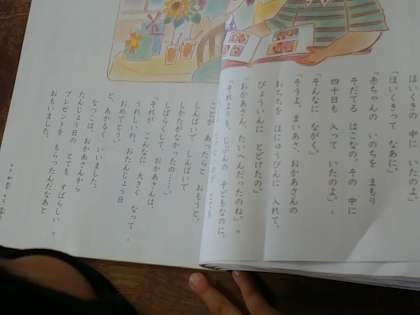 ほいくきの 中に いたよ。」
「ほいくきって なあに。」
「赤ちゃんの いのちを まもり
そだてる はこなの。その 中に
四十日も 入って いたのよ。」
「そんなに ながく。」
「そうよ。まいあさ、おかあさんの
おちちを ほにゅうびんに 入れて、
びょういんに とどけたの。」
「おかあさん、たいへんだったのね。」
「それよりも、じぶんの 子どもなのに、
しんぱいで しんぱいで
しかたがなかったの……。」
しばらくして、おかあさんは、
「それが、こんなに 大きく なって。
うれしいわ。おたんじょう日
おめでとう。」
と、あかるく いいました。
なつこは、おかあさんから
たんじょう日の とても すばらしい
プレゼントを もらったんだなあと
おもいました。